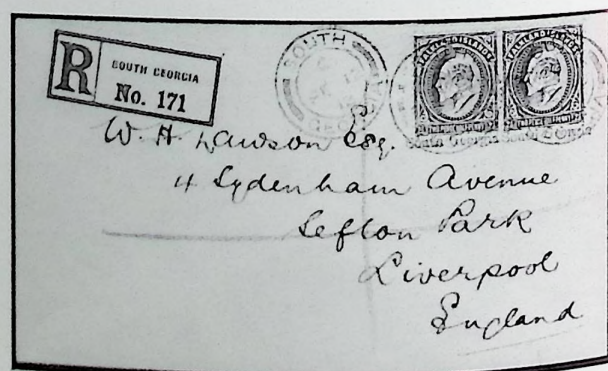 R
SOUTH GEORGIA
No. 171
SOUTH
GEORGIA
FALKLAND ISLANDS
FALKLAND ISLANDS
South Georgia
W. H. Lawson Esq.
4 Sydenham Avenue
Sefton Park
Liverpool
England